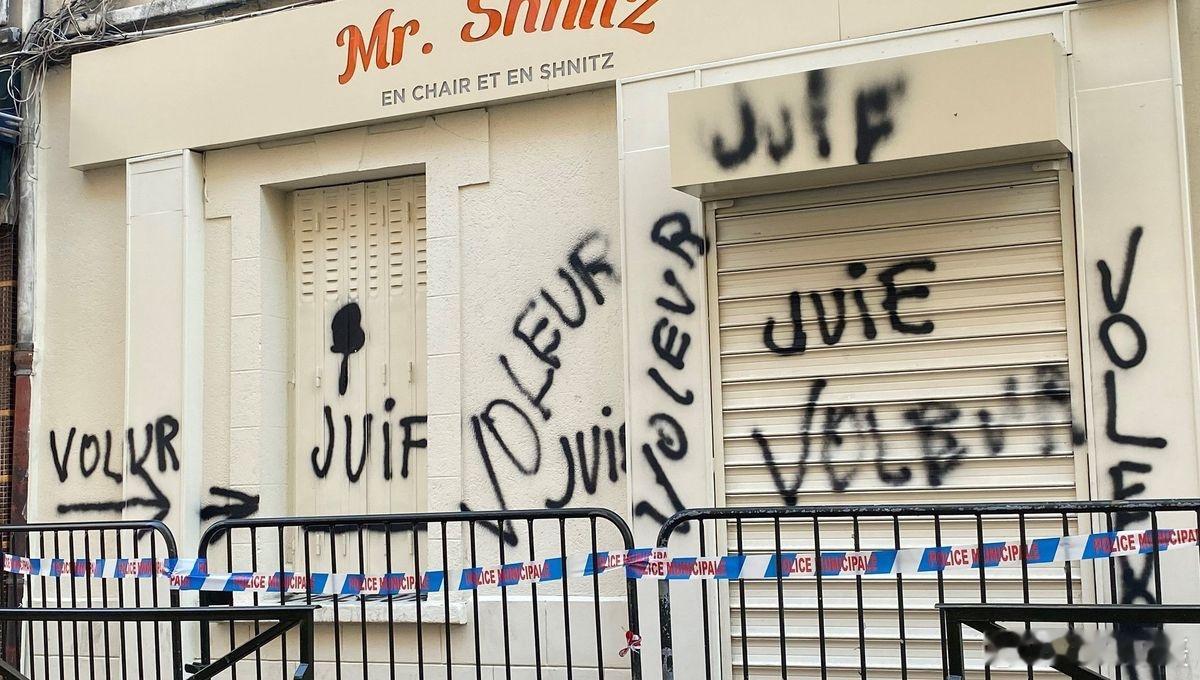 Mr. Shnitz
EN CHAIR ET EN SHNITZ
JUIF
VOLEUR
VOLEUR
JUIE
VOLEUR
VOLUR
JUIF
JUIF
VOLEUR
POLICE MUNICIPALE
POLICE MUNICIPALE
POLICE MUNICIPALE
POLICE MUNICIPALE
POLICE MUNICIPALE
POLICE MUNICIPALE
POLICE MUNICIPALE